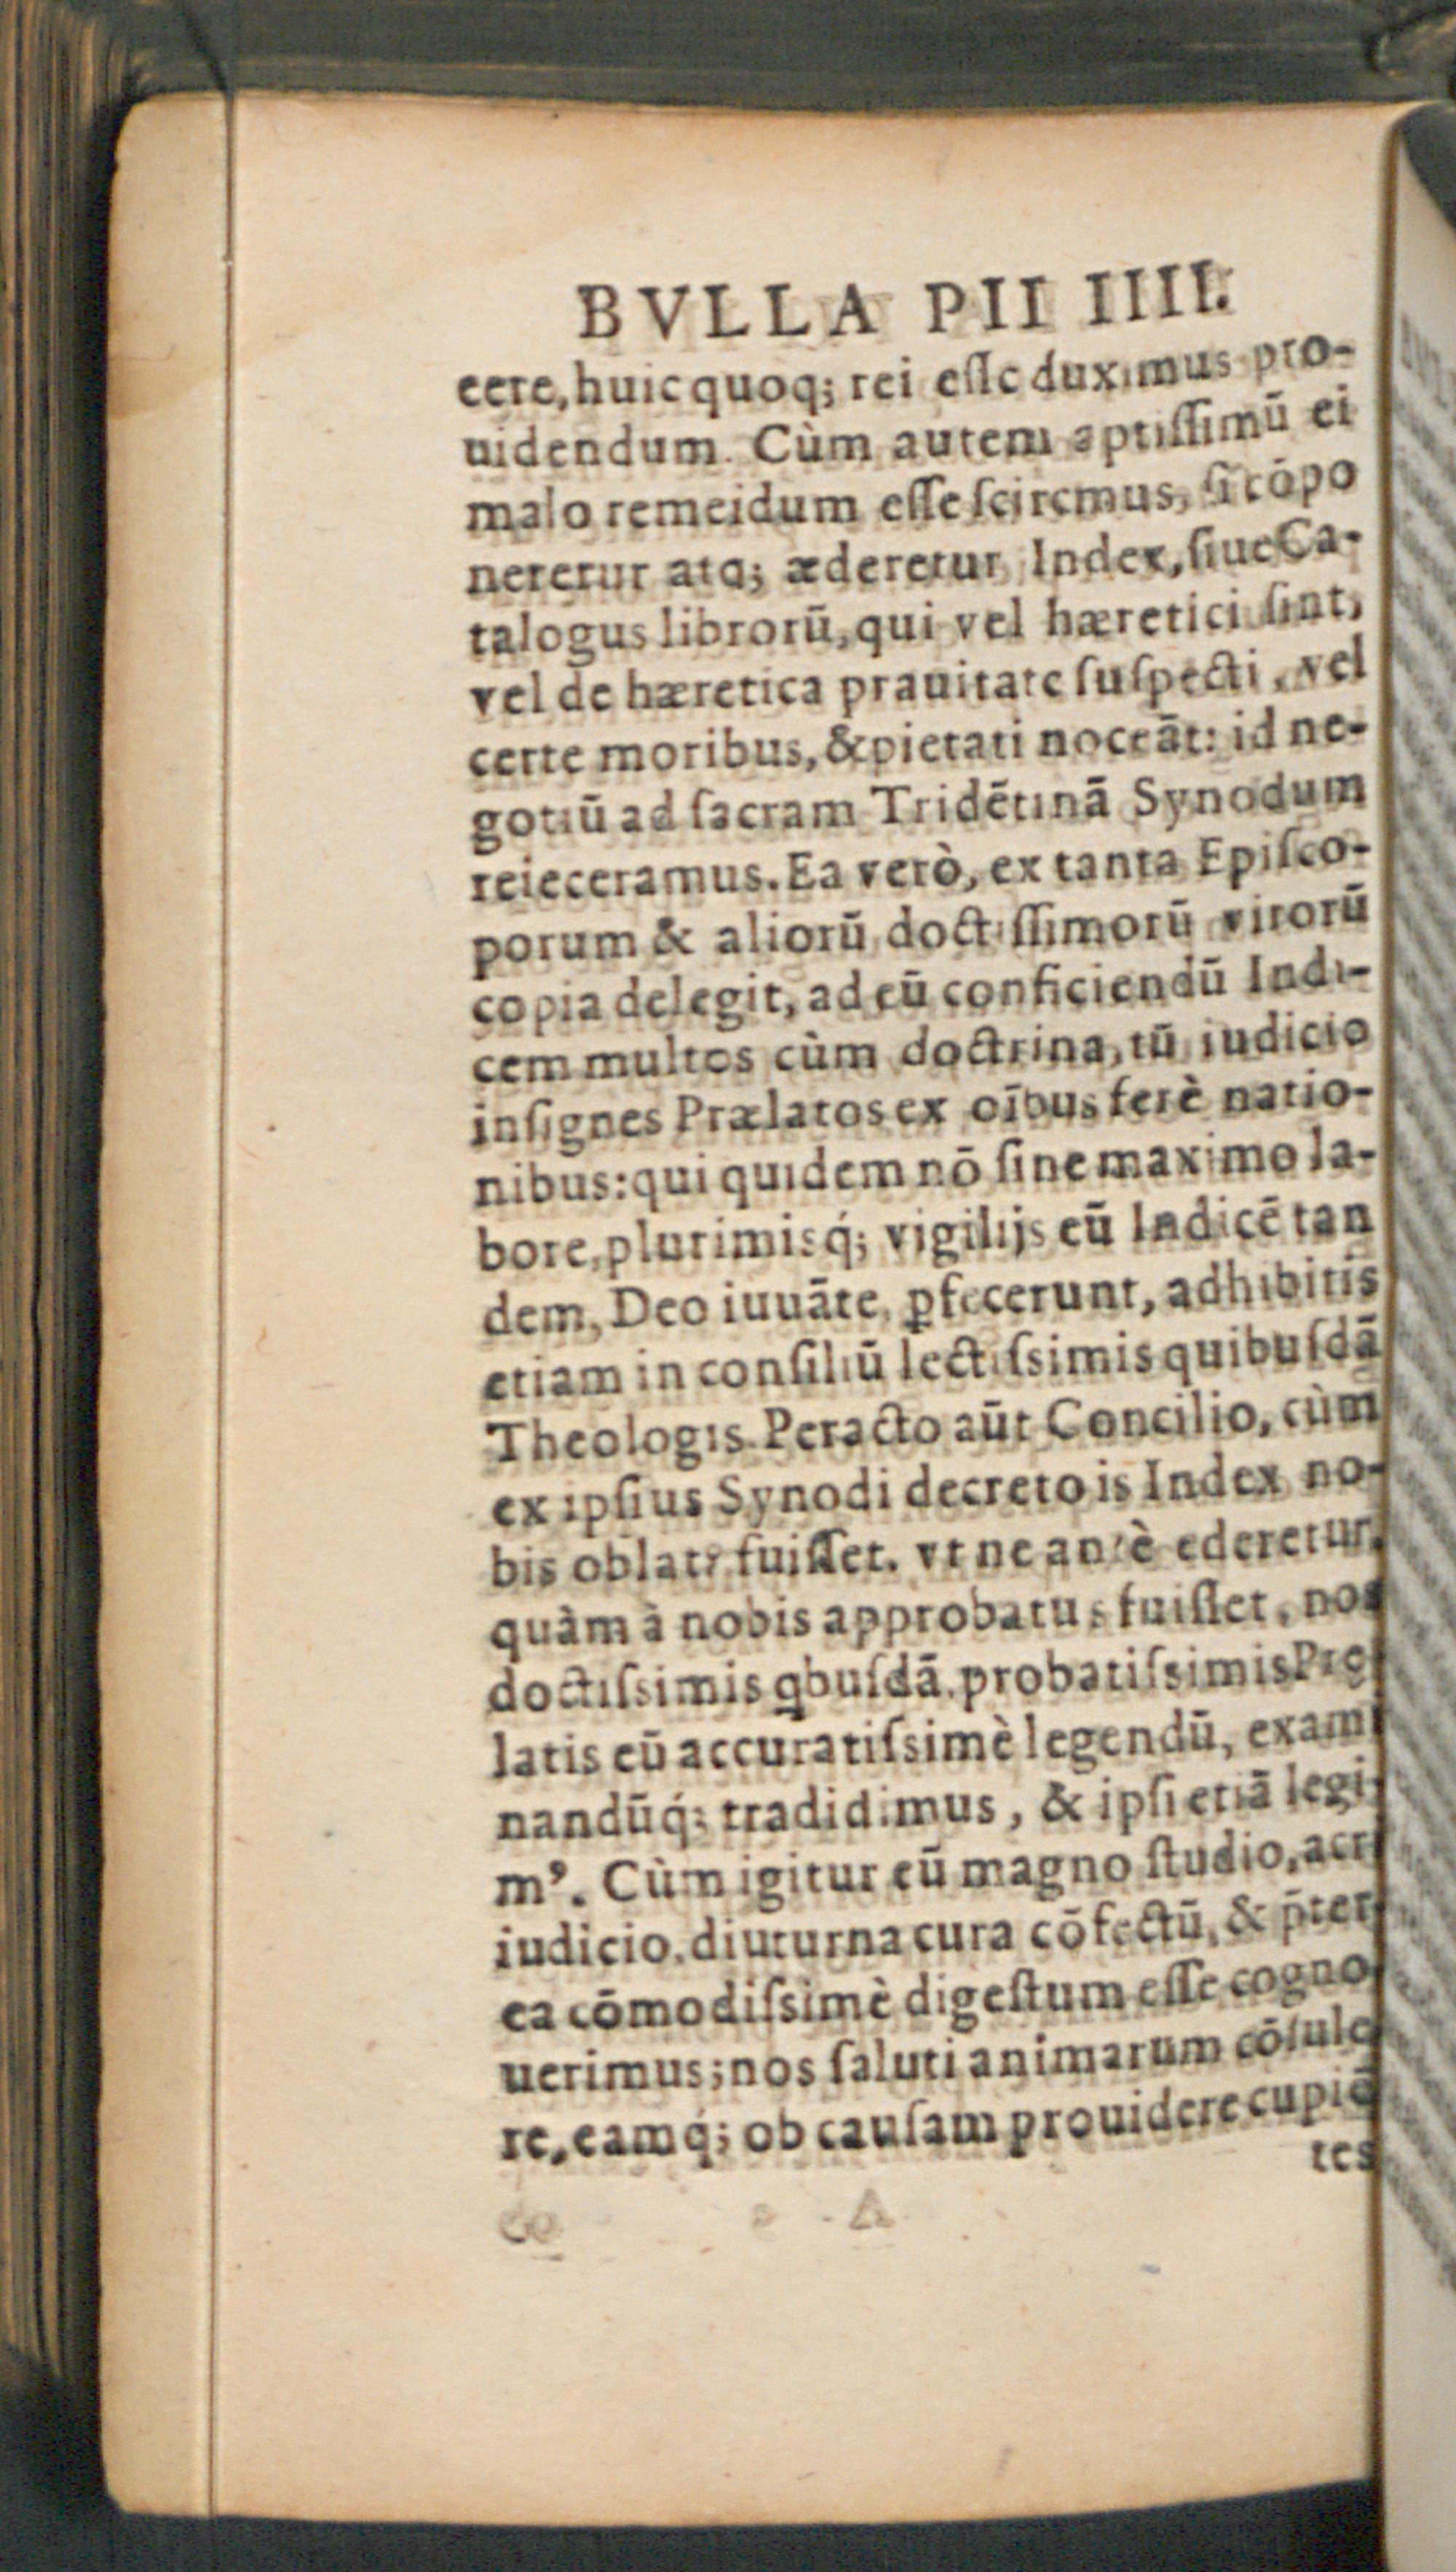 BVLLA PII IIII.
cere, huic quoq; rei esse duximus pro-
uidendum. Cùm autem aptissimū ei
malo remeidum esse sciremus, si cōpo
neretur atq; æderetur Index, siue Ca-
talogus librorū, qui vel hæretici sint,
vel de hæretica prauitate suspecti, vel
certe moribus, & pietati noceāt: id ne-
gotiū ad sacram Tridētinā Synodum
reieceramus. Ea verò, ex tanta Episco-
porum & aliorū doctissimorū virorū
copia delegit, ad eū conficiendū Indi-
cem multos cùm doctrina, tū iudicio
insignes Prælatos ex oībus ferè natio-
nibus: qui quidem nō sine maximo la-
bore, plurimisq́; vigilijs eū Indicē tan
dem, Deo iuuāte, ꝑfecerunt, adhibitis
etiam in consiliū lectissimis quibusdā
Theologis. Peracto aūt Concilio, cùm
ex ipsius Synodi decreto is Index no-
bis oblatꝰ fuisset. vt ne antè ederetur,
quàm à nobis approbatus fuisset, nos
doctissimis qbusdā probatissimis Pre
latis eū accuratissimè legendū, exami
nandūq́; tradidimus, & ipsi etiā legi-
mꝰ. Cùm igitur eū magno studio, acri
iudicio, diuturna cura cōfectū, & p̄ter
ea cōmodissimè digestum esse cogno
uerimus; nos saluti animarum cōsule
re, eamq́; ob causam prouidere cupiē
tes